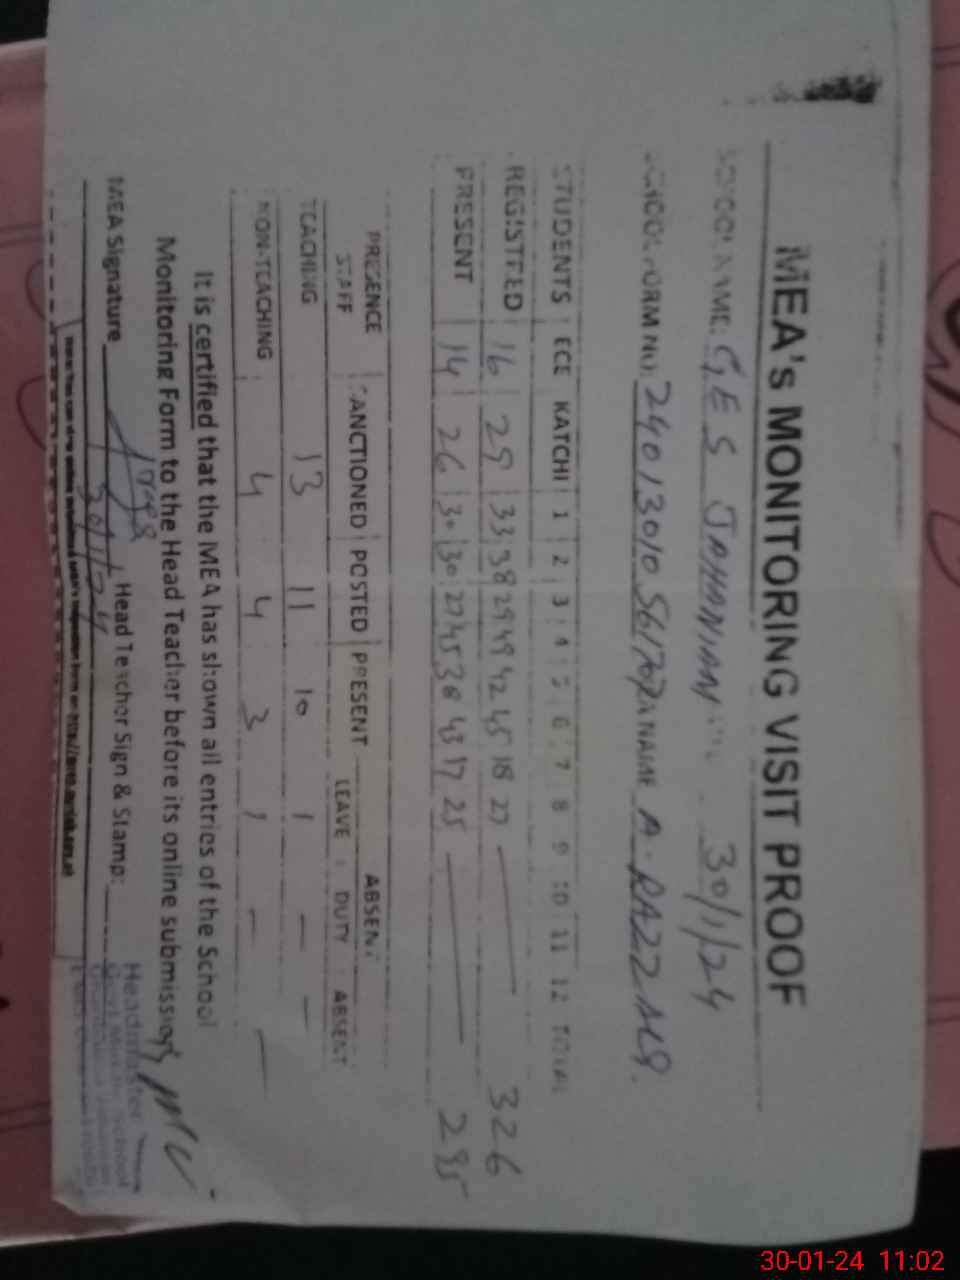 MEA's MONITORING VISIT PROOF
SCHOOL NAME: G.E.S JAHANIAN 30/1/24
SCHOOL FORM NO: NAME A. RAZZ
STUDENTS ECE KATCHI 1 2 3 4 5 6 7 8 9 10 11 12 TOTAL
REGISTRED 16 29 33 38 29 49 42 45 18 27 326
PRESENT 14 26 30 30 27 45 38 43 17 25 295
PRESENCE SANCTIONED POSTED PRESENT ABSENT
STAFF LEAVE DUTY ABSENT
TEACHING 13 11 10 1 — —
NON-TEACHING 4 4 3 1 — —
It is certified that the MEA has shown all entries of the School
Monitoring Form to the Head Teacher before its online submission
MEA Signature Head Teacher Sign & Stamp:
30/1/24
Headmaster
School
30-01-24 11:02